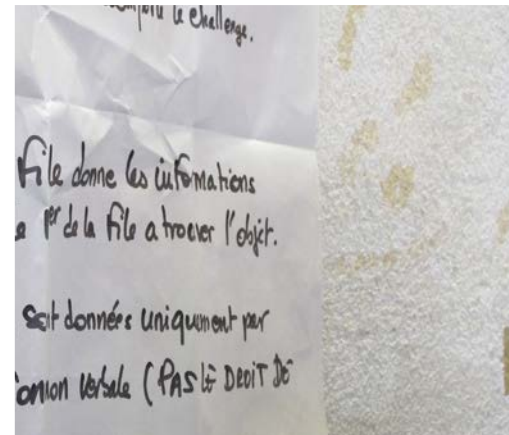 le challenge.
file donne les informations
1er de la file a trouver l'objet.
soit données uniquement par
verbale (PAS LE DROIT DE